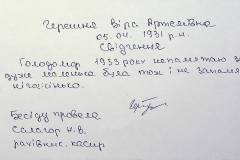 Герешня Віра Артемівна
05.04.1931 р.н.
Свідчення
Голодомор 1933 року не памятаю
дуже маленька була тож і не
нічогісінько.
Бесіду провела
Салагор Н.В.
рахівник, касир